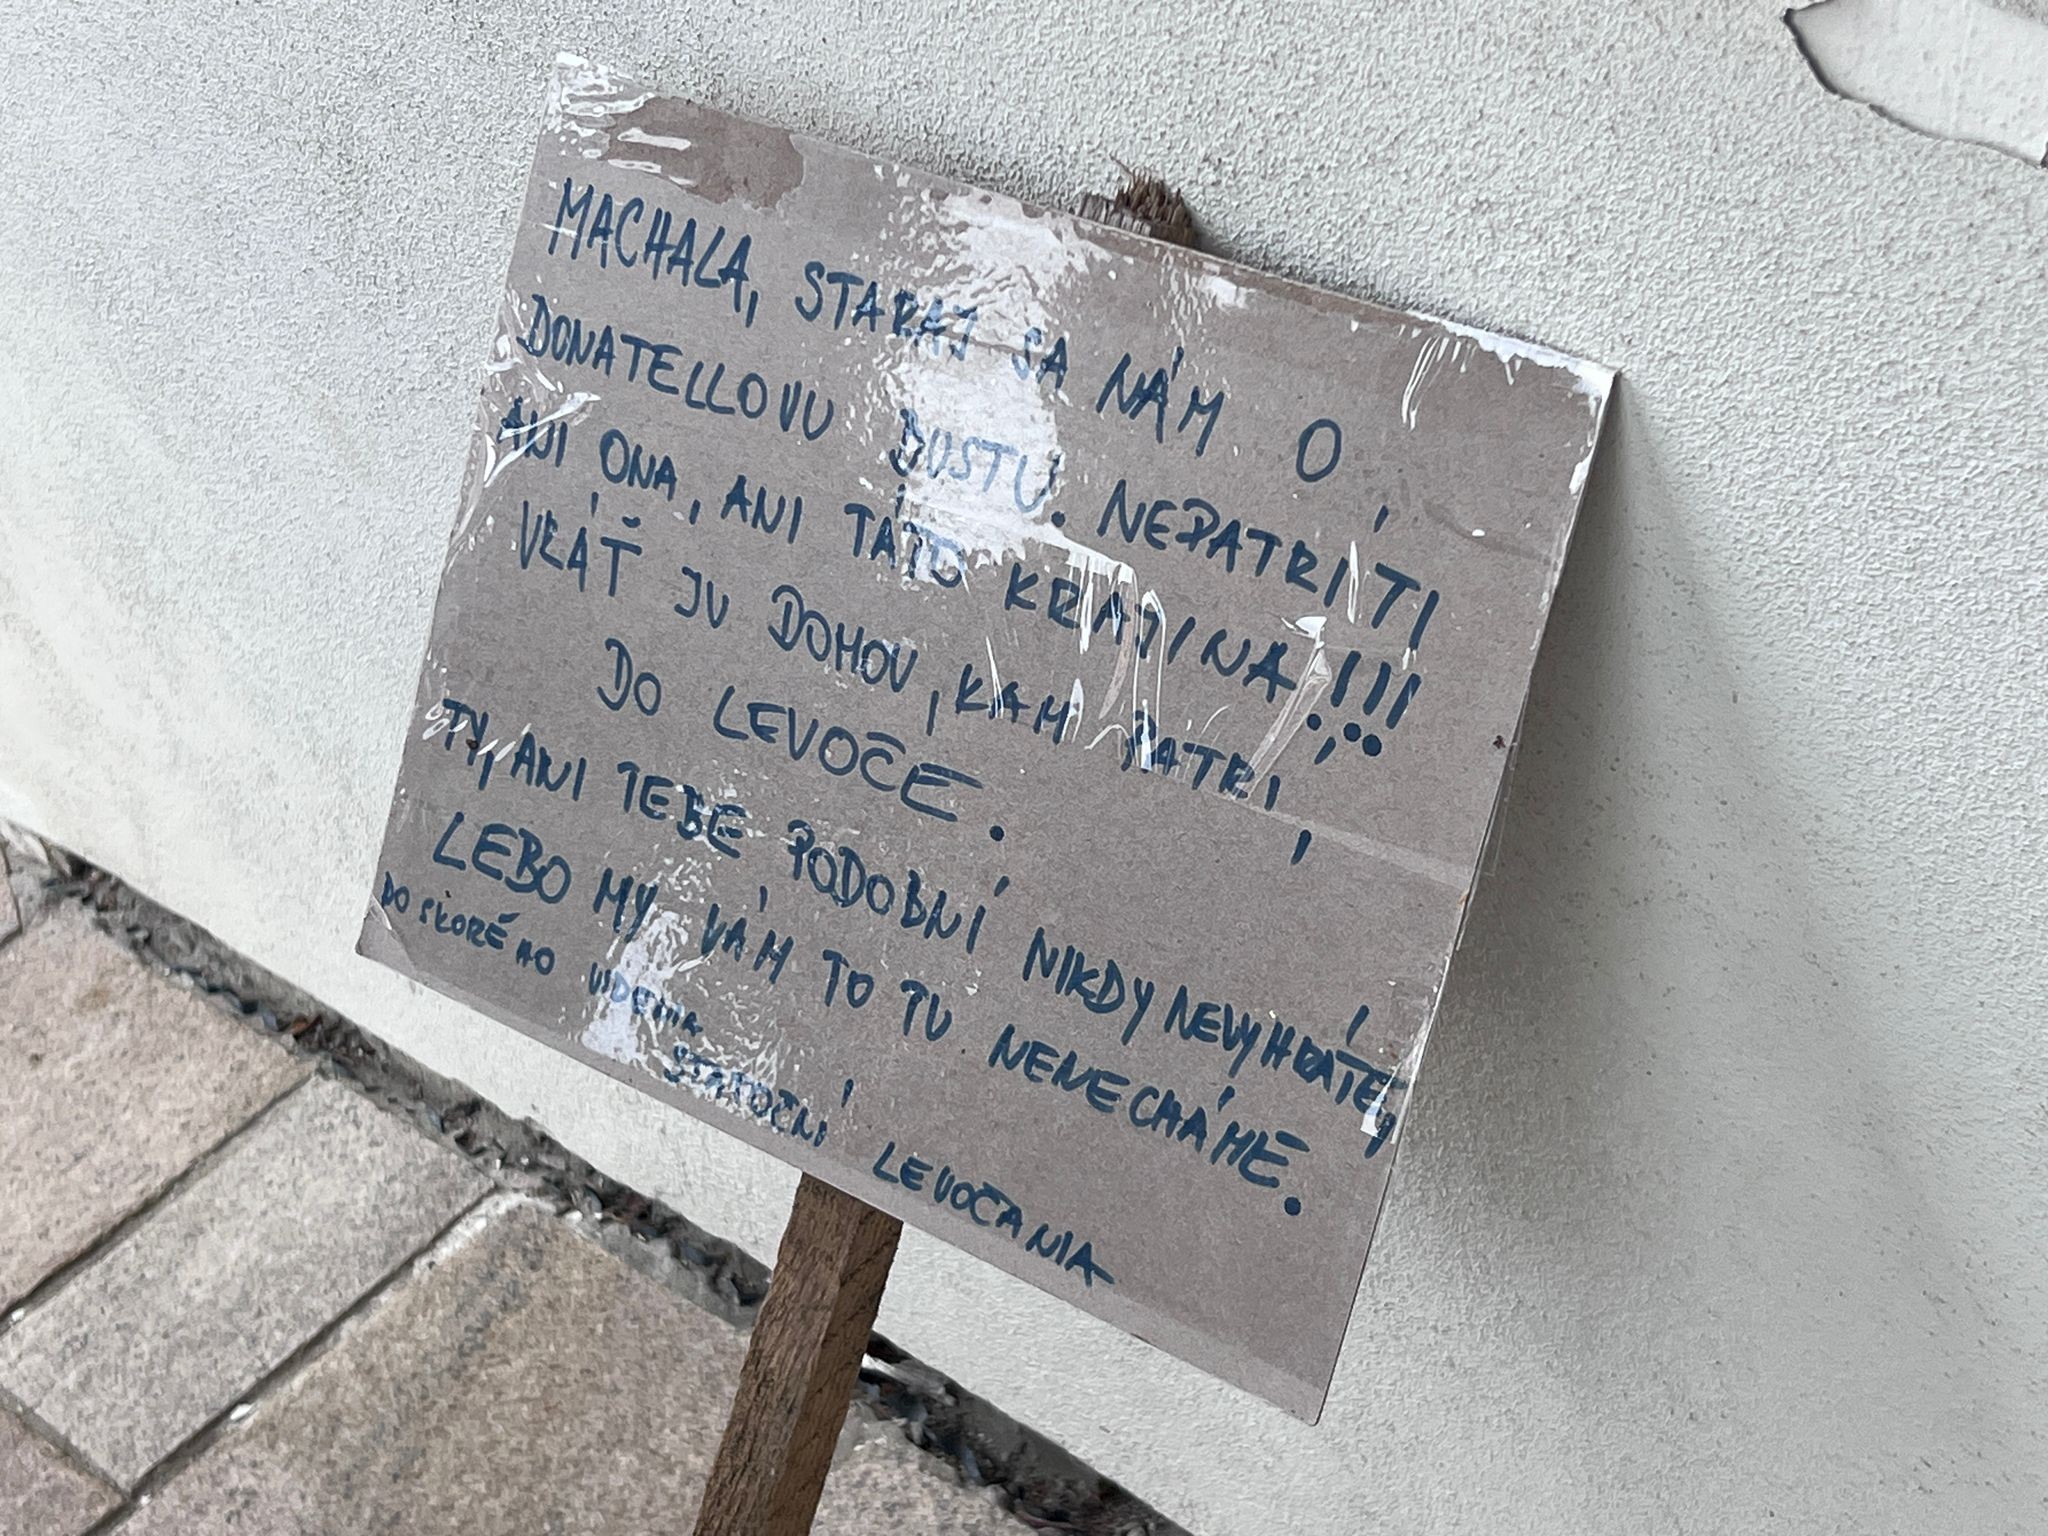 MACHALA, STARAJ SA NÁM O
DONATELLOVU BUSTU. NEPATRÍ TI
ANI ONA, ANI TÁTO KRAJINA!!!
VRÁŤ JU DOMOV, KAM PATRÍ,
DO LEVOČE.
TY, ANI TEBE PODOBNÍ NIKDY NEVYHRÁTE,
LEBO MY VÁM TO TU NENECHÁME.
DO SKORÉHO VIDENIA
STATOČNÍ LEVOČANIA